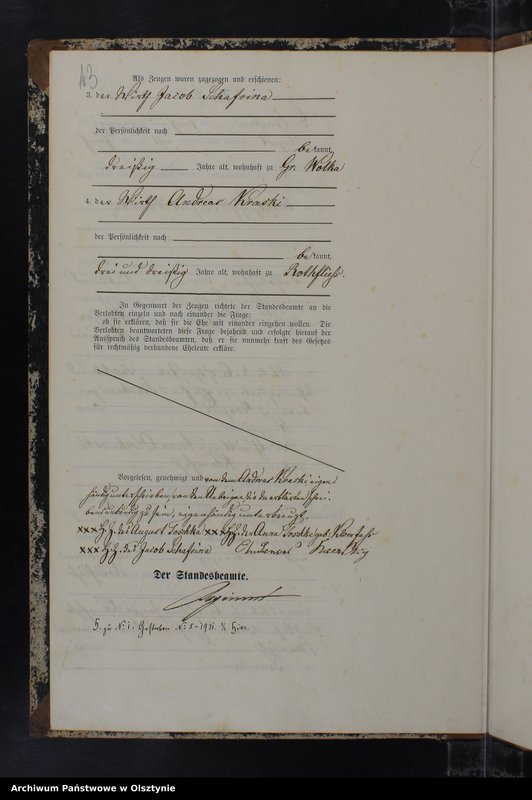 13
Als Zeugen waren zugezogen und erschienen:
3. der Wirth Jacob Schafrina
der Persönlichkeit nach
be kannt,
dreißig Jahre alt, wohnhaft zu Gr. Wolka
4. der Wirth Andreas Kraski
der Persönlichkeit nach
be kannt,
drei und dreißig Jahre alt, wohnhaft zu Rothfließ.
In Gegenwart der Zeugen richtete der Standesbeamte an die
Verlobten einzeln und nach einander die Frage:
ob sie erklären, daß sie die Ehe mit einander eingehen wollen. Die
Verlobten beantworteten diese Frage bejahend und erfolgte hierauf der
Ausspruch des Standesbeamten, daß er sie nunmehr kraft des Gesetzes
für rechtmäßig verbundene Eheleute erkläre.
Vorgelesen, genehmigt und von dem Andreas Kraski eigen
händig unterschrieben, von den Uebrigen, die erklärten schrei
bensunkundig zu sein, eigenhändig unterkreuzt.
xxx Hz. des August xxx Hz. der Anna geb.
xxx Hz. des Jacob Schafrina Andreas
Der Standesbeamte.
H. zu No 1. Gestorben No 5-1931
Archiwum Państwowe w Olsztynie